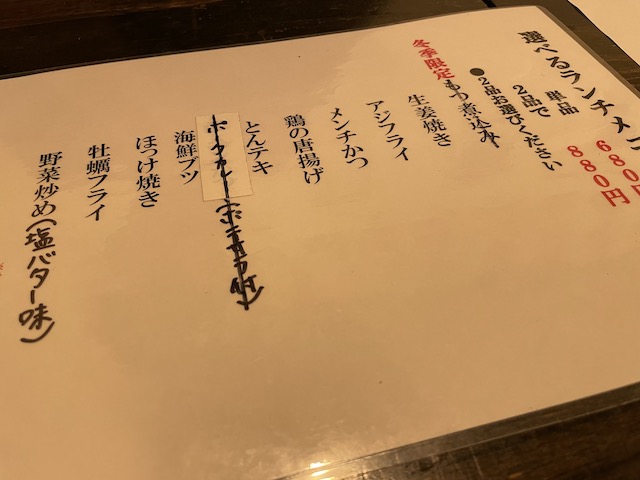 選べるランチメニ
単品 680円
2品で 880円
●2品お選びください
冬季限定 もつ煮込み
生姜焼き
アジフライ
メンチかつ
鶏の唐揚げ
とんテキ
ポークカレー(ポテサラ付)
海鮮ブツ
ほっけ焼き
牡蠣フライ
野菜炒め(塩バター味)